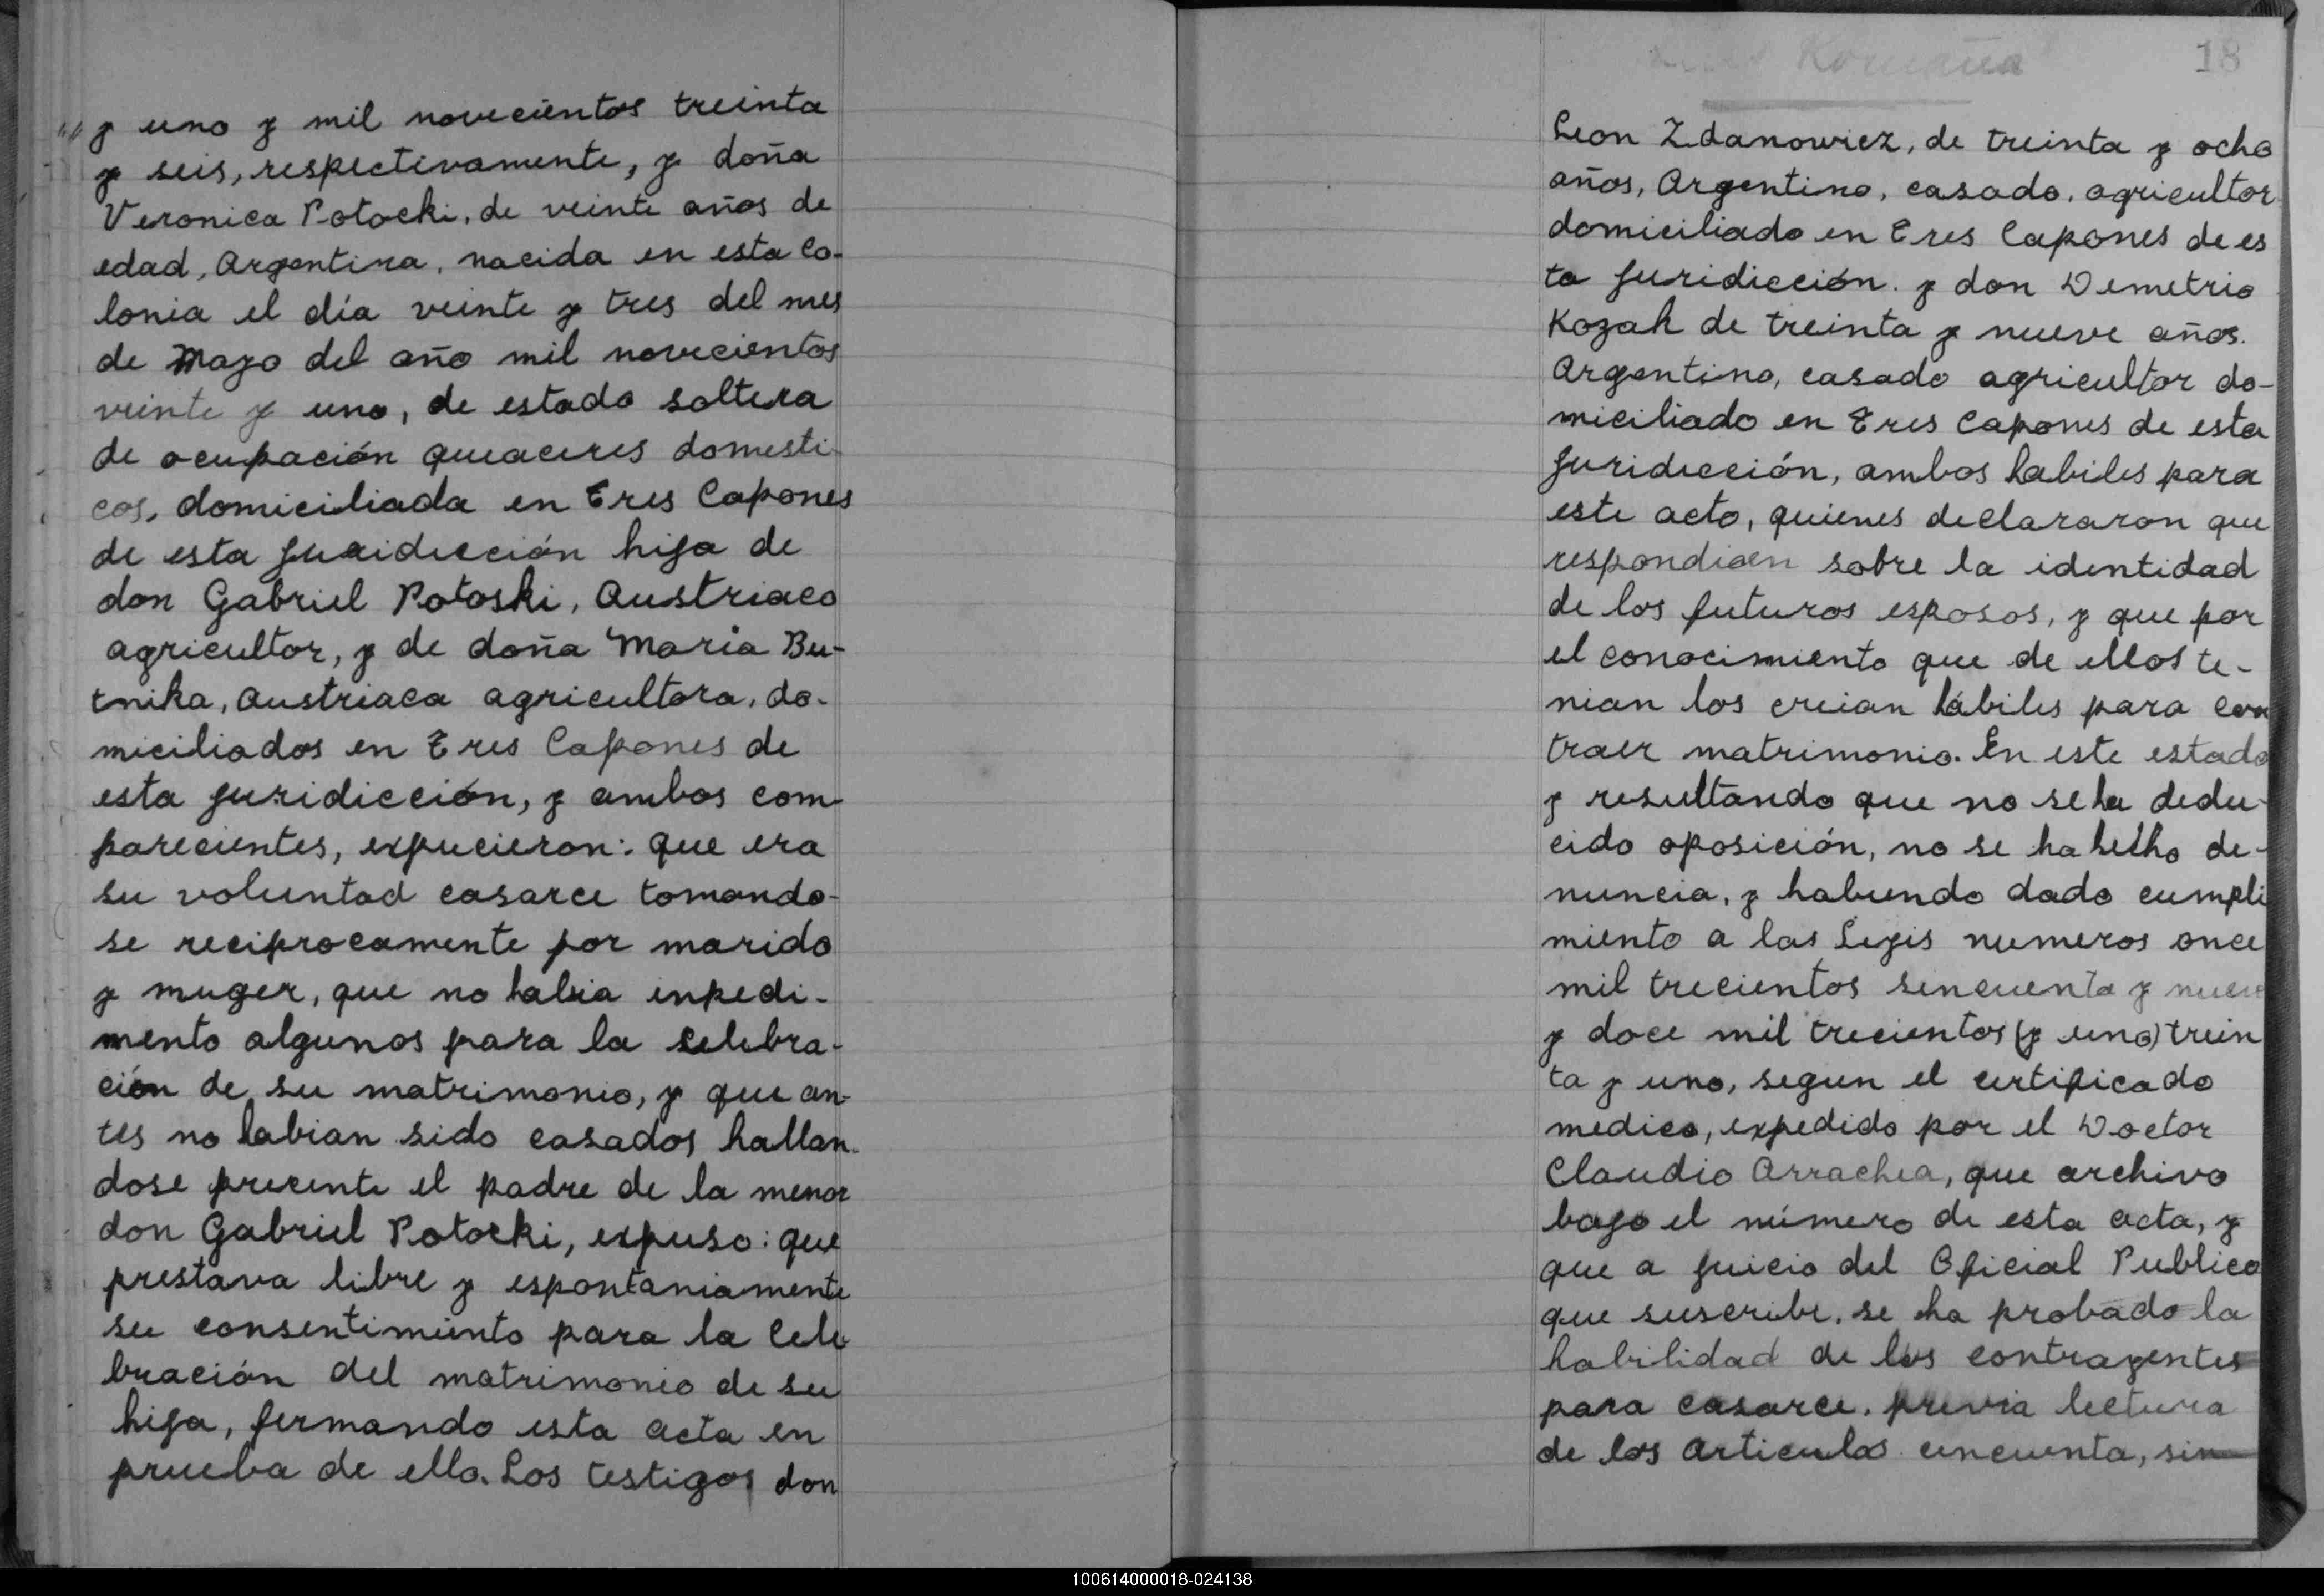 y uno y mil novecientos treinta
y seis, respectivamente, y doña
Veronica Potocki, de veinte años de
edad, Argentina, nacida en esta Co-
lonia el día veinte y tres del mes
de Mayo del año mil novecientos
veinte y uno, de estado soltera
de ocupación queaceres domesti-
cos, domiciliada en Tres Capones
de esta juridicción hija de
don Gabriel Potoski, Austriaco
agricultor, y de doña Maria Bu-
tnika, Austriaca agricultora, do-
miciliados en Tres Capones de
esta juridicción, y ambos com-
parecientes, expucieron: que era
su voluntad casarce tomando-
se reciprocamente por marido
y muger, que no habia inpedi-
mento algunos para la selebra-
ción de su matrimonio, y que an-
tes no habian sido casados hallan-
dose precente el padre de la menor
don Gabriel Potocki, expuso: que
prestava libre y espontaniamente
su consentimiento para la Cele
bración del matrimonio de su
hija, firmando esta acta en
prueba de ello. Los testigos don
18
Romaña
Leon Zdanowicz, de treinta y ocho
años, Argentino, casado, agricultor
domiciliado en Tres Capones de es
ta juridicción. y don Demetrio
Kozak de treinta y nueve años.
Argentino, casado agricultor do-
miciliado en Tres Capones de esta
juridicción, ambos habiles para
este acto, quienes declararon que
respondian sobre la identidad
de los futuros esposos, y que por
el conocimiento que de ellos te-
nian los creian hábiles para con
traer matrimonio. En este estado
y resultando que no se ha dedu-
cido oposición, no se ha hecho de-
nuncia, y habiendo dado cumpli
miento a las Leyis numeros once
mil trecientos sencuenta y nueve
y doce mil trecientos (y uno) trein
ta y uno, segun el certificado
medico, expedido por el Doctor
Claudio Arrachea, que archivo
bajo el número de esta acta, y
que a juicio del Oficial Publico
que suscribe, se ha probado la
habilidad de los contrayentes
para casarce. previa lectura
de los Articulos cincuenta, sin
100614000018-024138